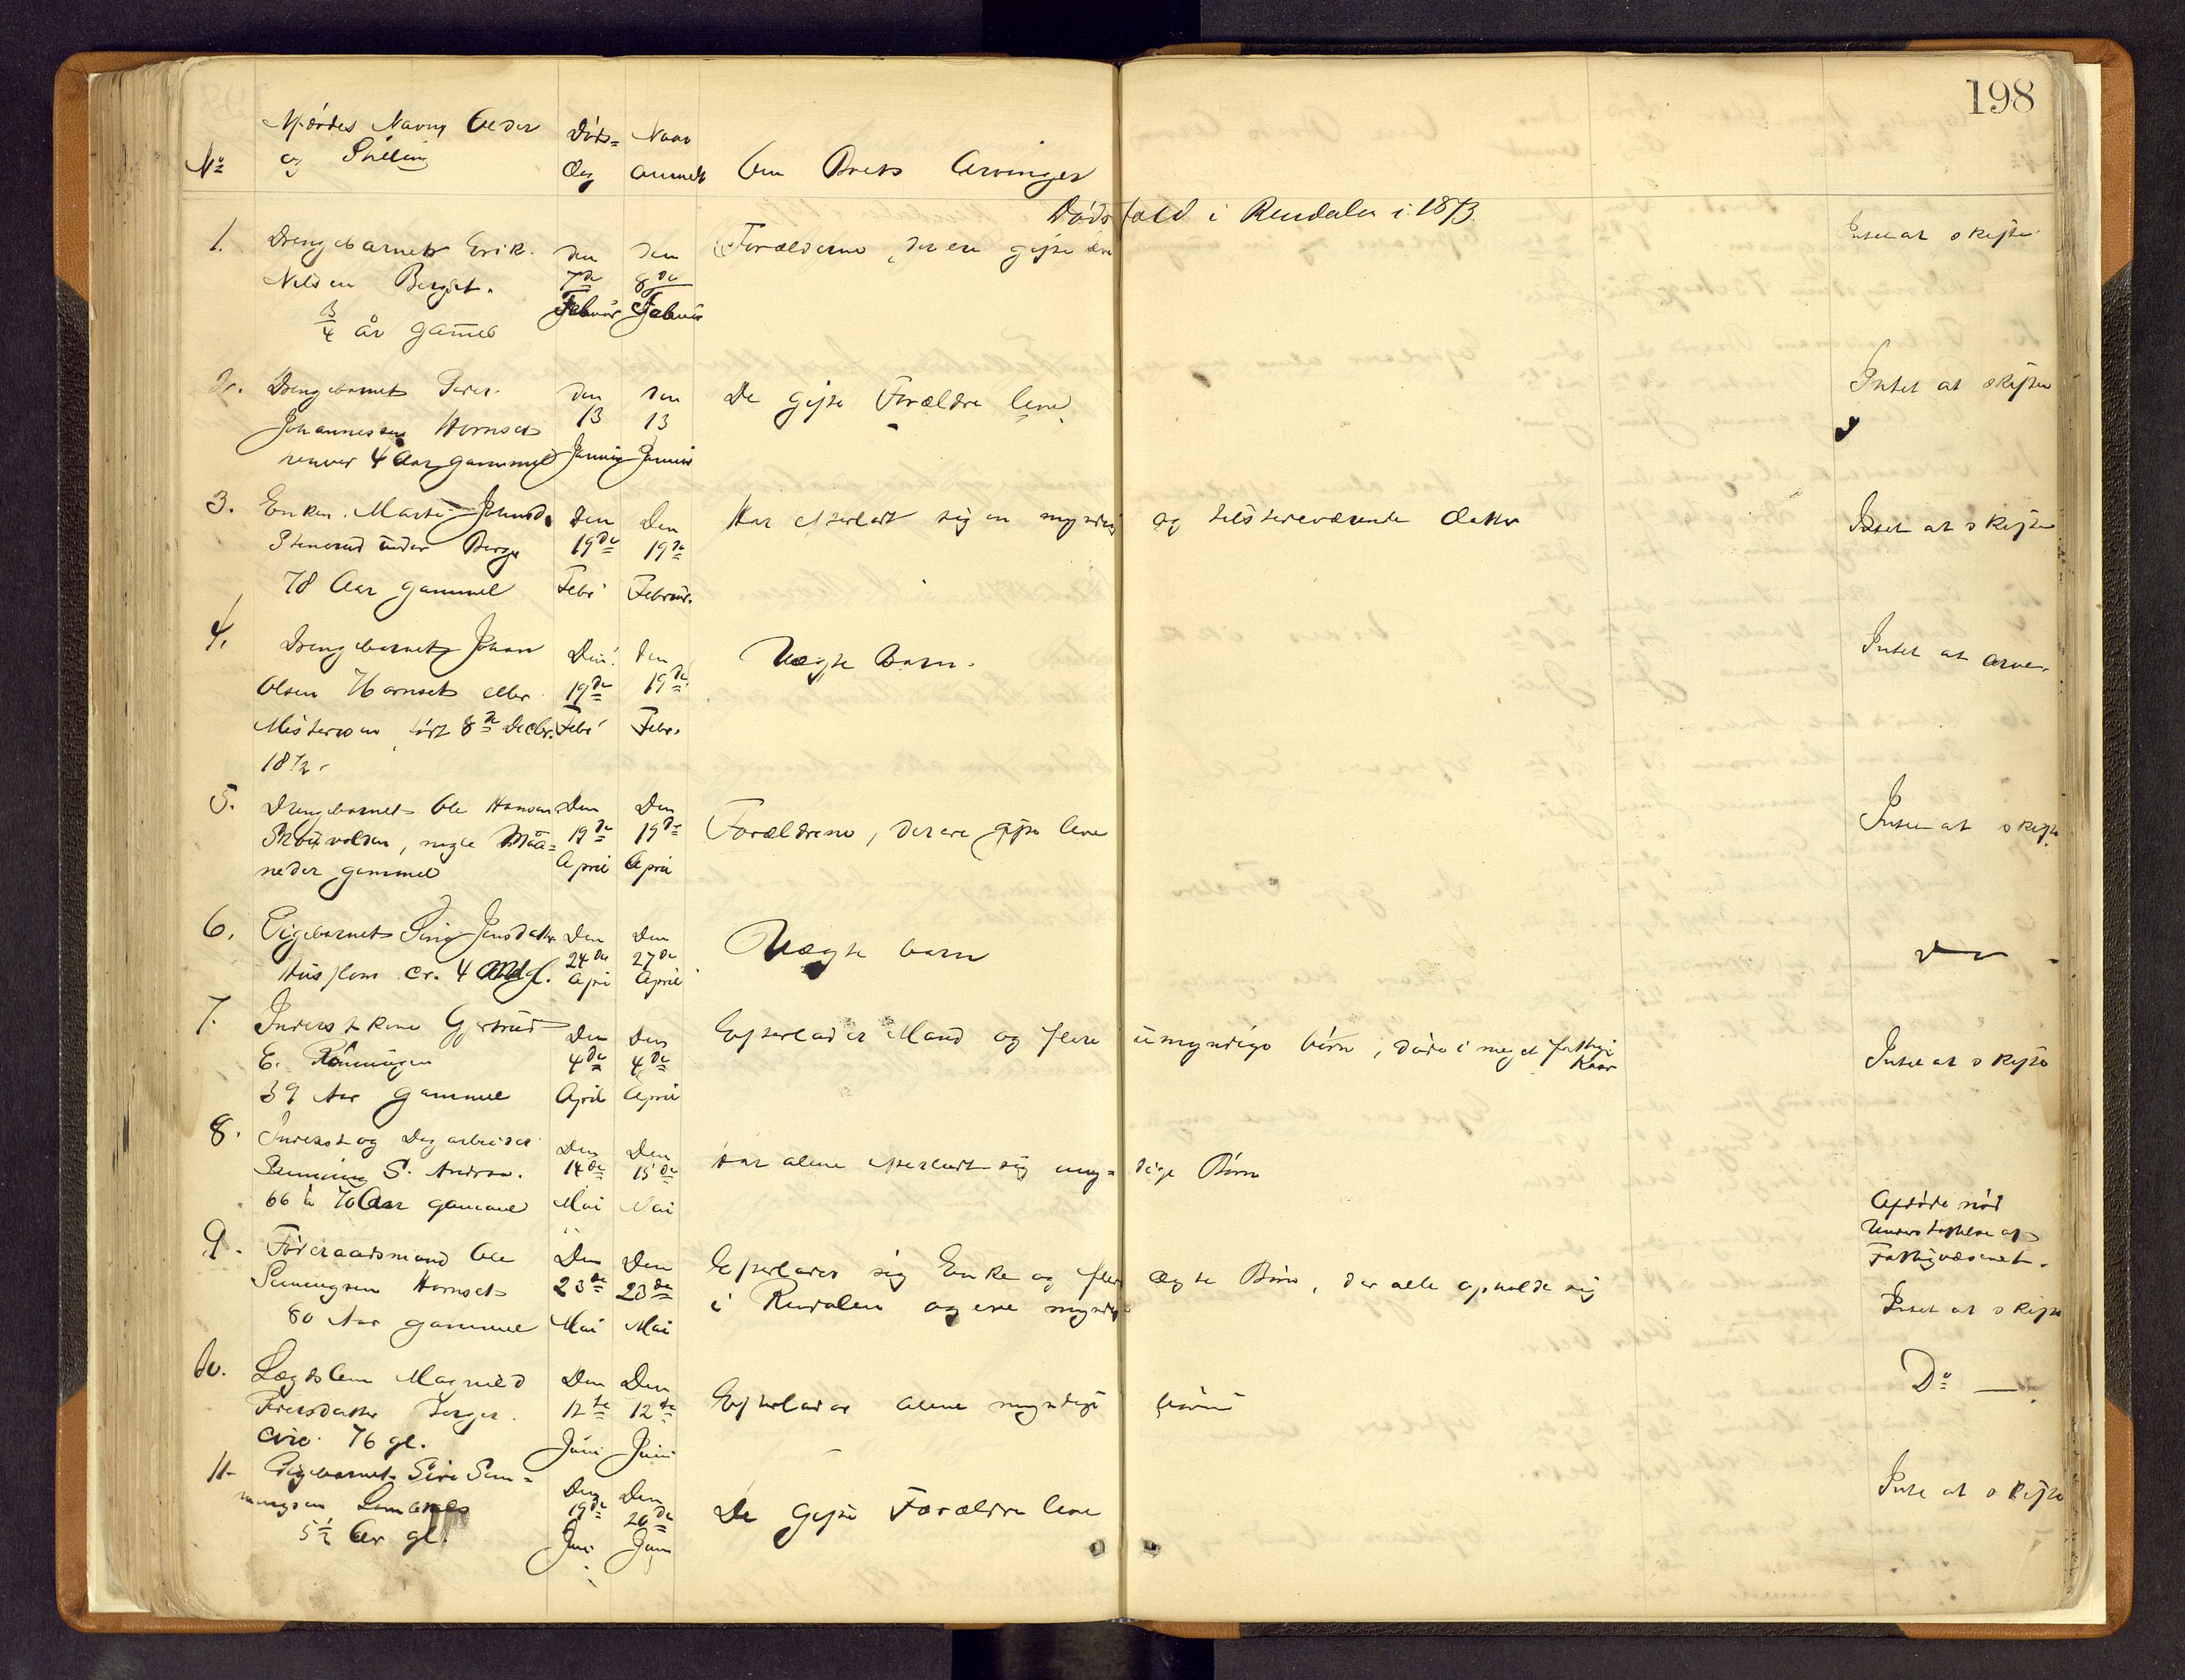 198
Afdødes Navn, Alder
og Stilling
No
Døds-
Dag
Naar
anmeldt
Om Boets Arvinger
Dødsfald i Rendalen i 1873.
1. Drengebarnet Erik
Nilsen Berget.
3/4 år gamel
den 7de Februar
den 8de Februar
Forælderne, der ere gifte leve
Intet at skifte
2. Drengebarnet Peder
Johannessen Hornset
henver 4 Aar gammel
den 13 Januar
den 13 Januar
De gifte Forældre leve.
Intet at skifte
3. Enken Marte Johnsd.
Stenerud under Berge
78 Aar gammel
den 19de Febr
Den 19de Februar.
Har efterladt sig en myndig og tilstedeværende Datter
Intet at skifte
4. Drengebarnet Johan
Olsen Hornset eller
født 8de Decbr.
1872.
Den 19de Febr
den 19de Febr.
Uægte Barn.
Intet at arve.
5. Drengebarnet Ole Hansen
nogle Maa=
neder gammel
Den 19de April
Den 19de April
Forældrene, der ere gifte leve
Intet at skifte
6. Pigebarnet Jensdatter
cr. 4 Md gl.
Den 24de Apri
Den 27de April
Uægte barn
Do
7. Inderstkone Gjertrud
E. Rønningen
39 Aar gammel
Den 4de April
Den 4de April
Efterlader Mand og flere umyndige børn, døde i meget fattige
Kaar
Intet at skifte
8. Inderst og Dagarbeider
Semming S. Andraa.
66 à 70 Aar gammel
Den 14de Mai
Den 15de Mai
Har alene efterladt sig myn=dige Børn
Afdøde nød
Understøttelse af
Fattigvæsenet.
9. Føderaadsmand Ole
Semmingsen Hornset
80 Aar gammel
Den 23de Mai
Den 23de Mai
Efterlader sig Enke og flere ægte Børn, der alle opholde sig
i Rendalen og ere myndige
Intet at skifte
10. Lægdslem Magnild
Pedersdatter Berger.
circ. 76 gl.
Den 12te Juni
Den 12te Juni
Efterlader alene myndige børn
Do —
11. Pigebarnet Siri Sem=
mingsen Lomnæs
5½ Aar gl.
Den 19de Juni
Den 20de Juni
De gifte Forældre leve
Intet at skifte